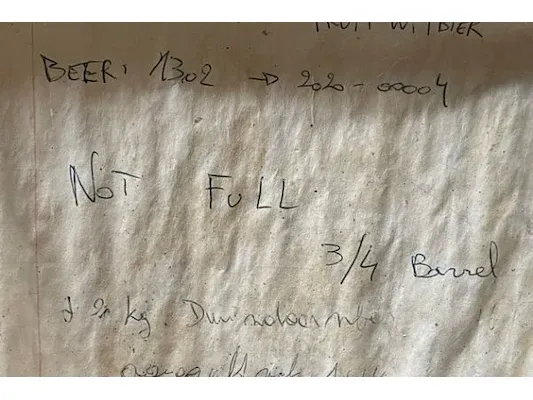 FRUIT WITBIER
BEER: 1302 → 2020-00004
NOT FULL
3/4 Barrel
kg. Duindoornbe